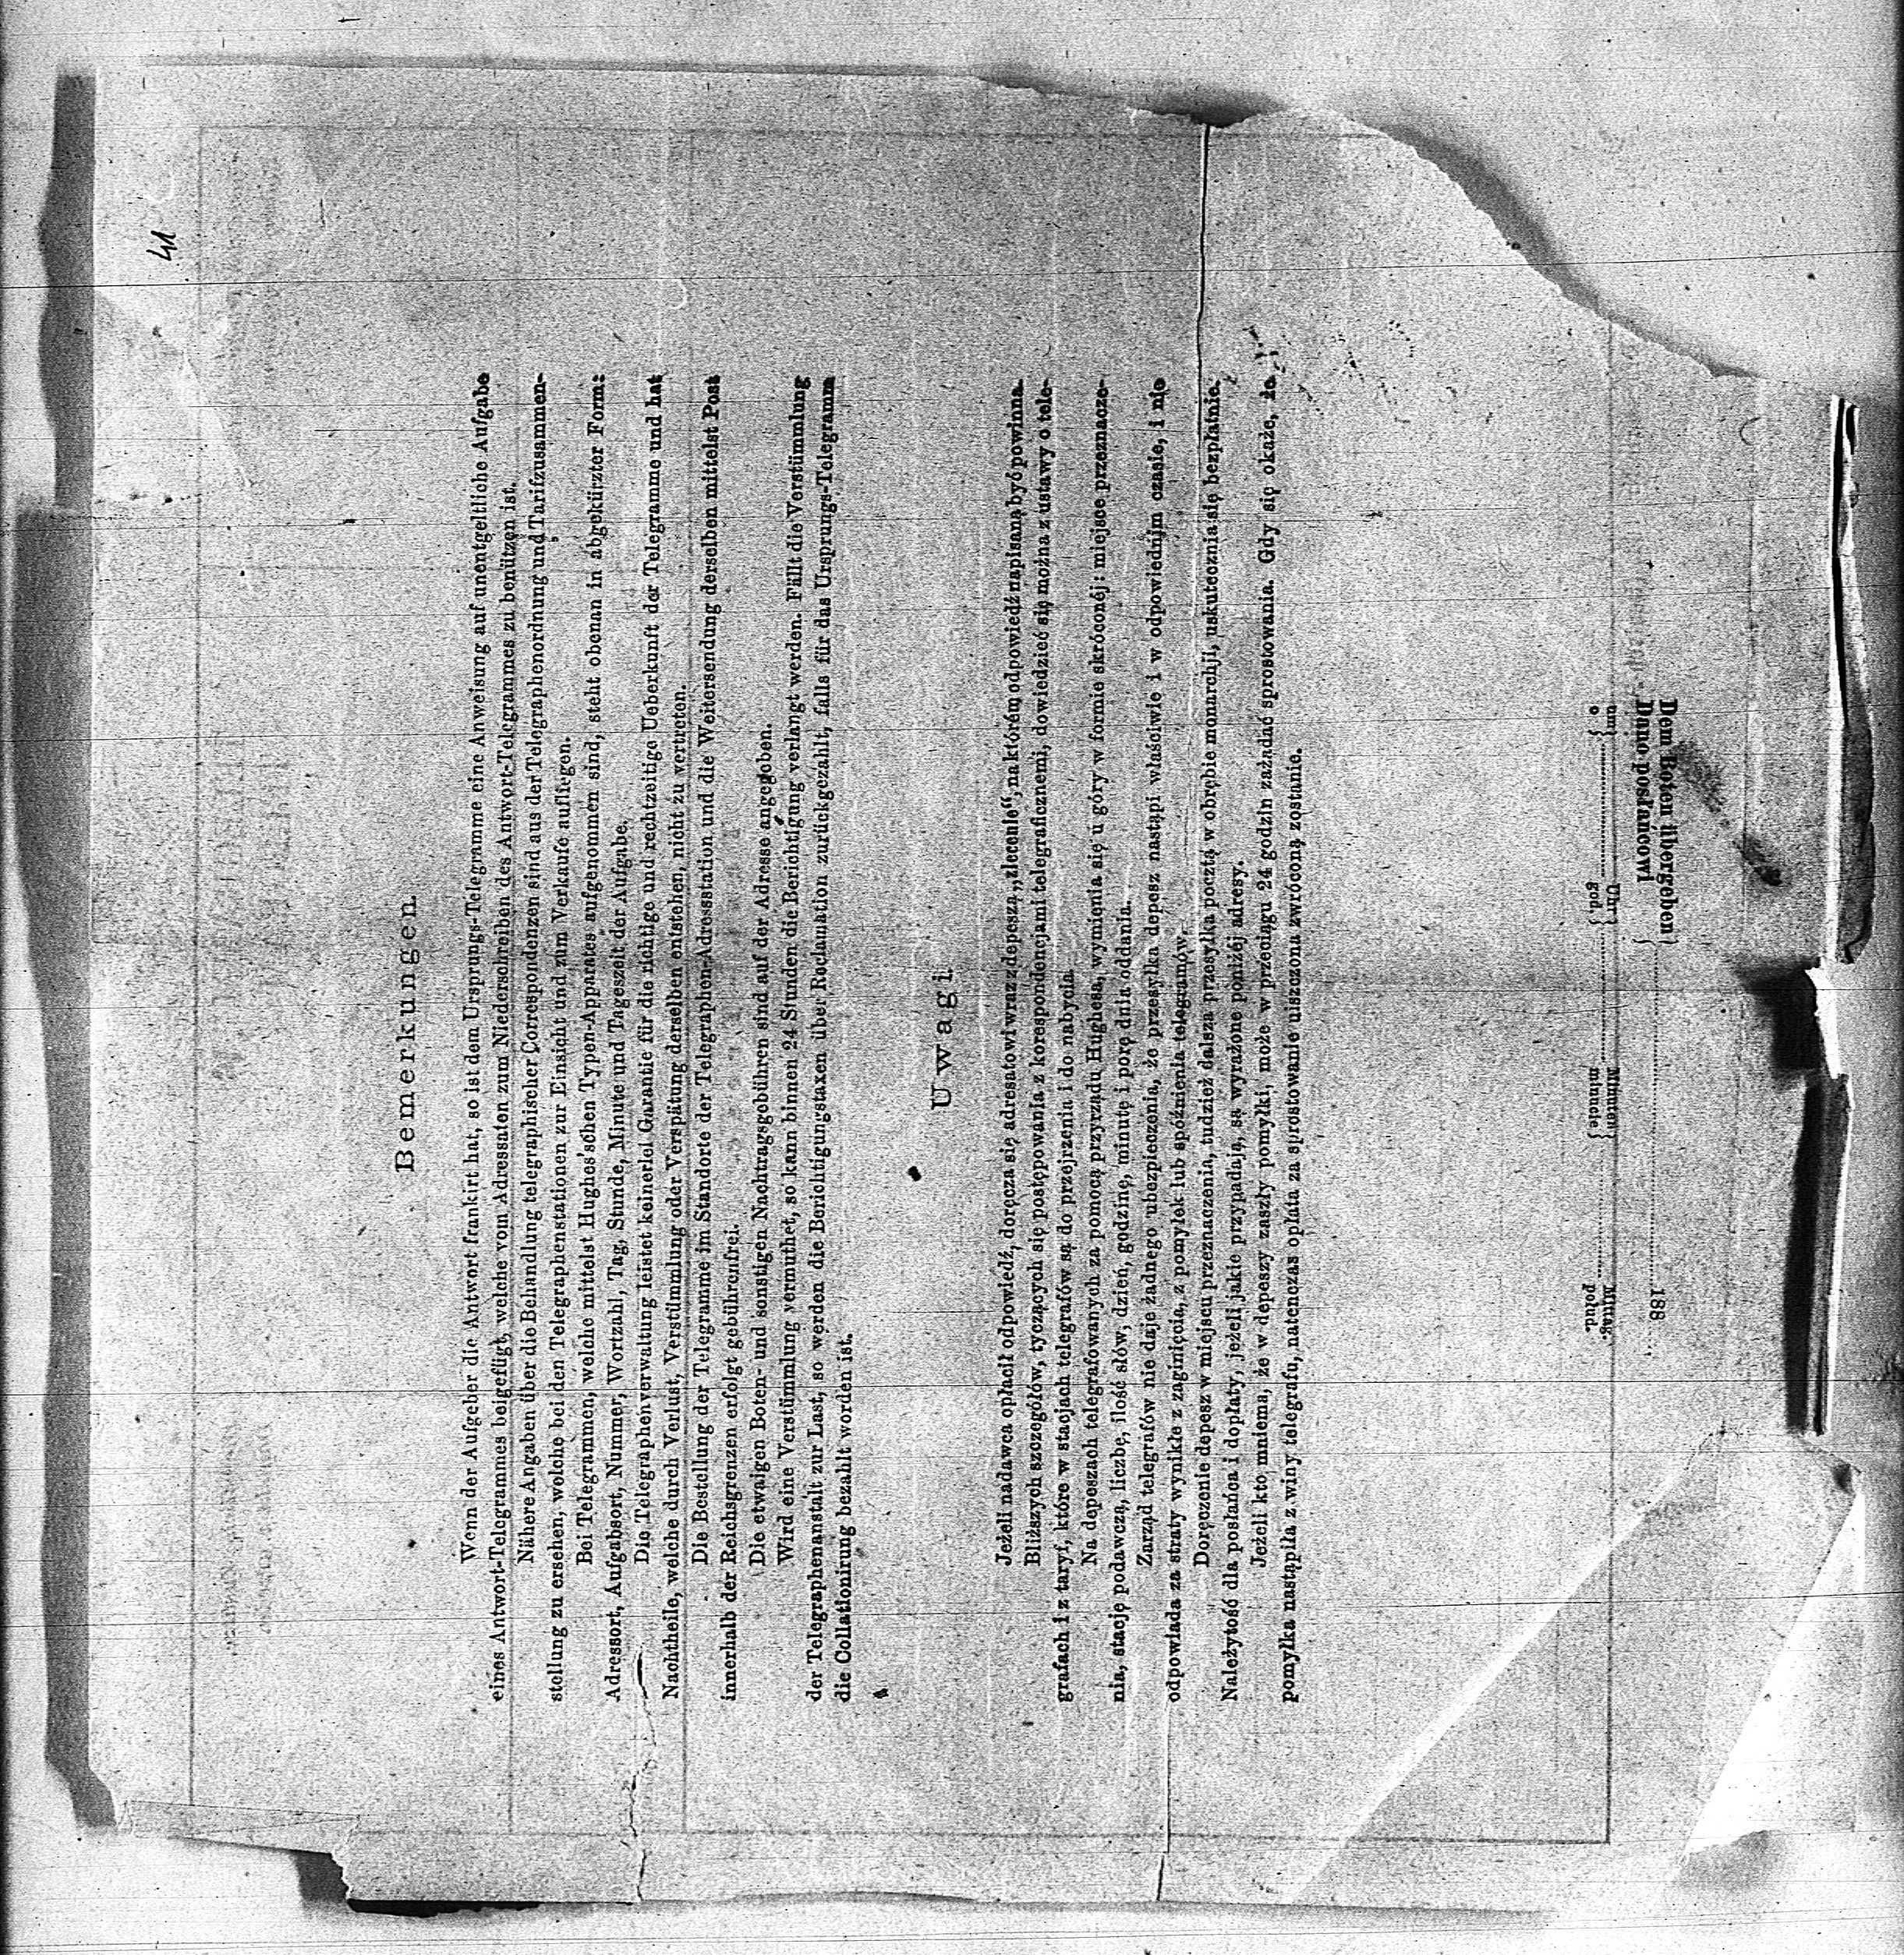 41
Bemerkungen
Wenn der Aufgeber die Antwort frankirt hat, so ist dem Ursprungs-Telegramme eine Anweisung auf unentgeltliche Aufgabe
eines Antwort-Telegrammes beigefügt, welche vom Adressaten zum Niederschreiben des Antwort-Telegrammes zu benützen ist.
Nähere Angaben über die Behandlung telegraphischer Correspondenzen sind aus der Telegraphenordnung und Tarifzusammen-
stellung zu ersehen, welche bei den Telegraphenstationen zur Einsicht und zum Verkaufe aufliegen.
Bei Telegrammen, welche mittelst Hughes'schen Typen-Apparates aufgenommen sind, steht obenan in abgekürzter Form:
Adressort, Aufgabsort, Nummer, Wortzahl, Tag, Stunde, Minute und Tageszeit der Aufgabe.
Die Telegraphenverwaltung leistet keinerlei Garantie für die richtige und rechtzeitige Ueberkunft der Telegramme und hat
Nachtheile, welche durch Verlust, Verstümmlung oder Verspätung derselben entstehen, nicht zu vertreten.
Die Bestellung der Telegramme im Standorte der Telegraphen-Adressstation und die Weitersendung derselben mittelst Post
innerhalb der Reichsgrenzen erfolgt gebührenfrei.
Die etwaigen Boten- und sonstigen Nachtragsgebühren sind auf der Adresse angegeben.
Wird eine Verstümmlung vermuthet, so kann binnen 24 Stunden die Berichtigung verlangt werden. Fällt die Verstümmlung
der Telegraphenanstalt zur Last, so werden die Berichtigungstaxen über Reclamation zurückgezahlt, falls für das Ursprungs-Telegramm
die Collationirung bezahlt worden ist.
Uwagi
Jeżeli nadawca opłacił odpowiedź, doręcza się adresatowi wraz z depeszą „zlecenie“, na którém odpowiedź napisaną być powinna.
Bliższych szczegółów, tyczących się postępowania z korespondencjami telegraficznemi, dowiedzieć się można z ustawy o tele-
grafach i z taryf, które w stacjach telegrafów są do przejrzenia i do nabycia.
Na depeszach telegrafowanych za pomocą przyrządu Hughesa, wymienia się u góry w formie skróconéj: miejsce przeznacze-
nia, stację podawczą, liczbę, ilość słów, dzień, godzinę, minutę i porę dnia oddania.
Zarząd telegrafów nie daje żadnego ubezpieczenia, że przesyłka depesz nastąpi właściwie i w odpowiednim czasie, i nie
odpowiada za straty wynikłe z zaginięcia, z pomyłek lub spóźnienia telegramów.
Doręczenie depesz w miejscu przeznaczenia, tudzież dalsza przesyłka pocztą w obrębie monarchji, uskutecznia się bezpłatnie.
Należytość dla posłańca i dopłaty, jeżeli jakie przypadają, są wyrażone poniżéj adresy.
Jeżeli kto mniema, że w depeszy zaszły pomyłki, może w przeciągu 24 godzin zażądać sprostowania. Gdy się okaże, że
pomyłka nastąpiła z winy telegrafu, natenczas opłata za sprostowanie uiszczona zwróconą zostanie.
Dem Boten übergeben } 188
Dano posłańcowi }
um } Uhr } Minuten } Mittag.
o } god. } minucie } połud.